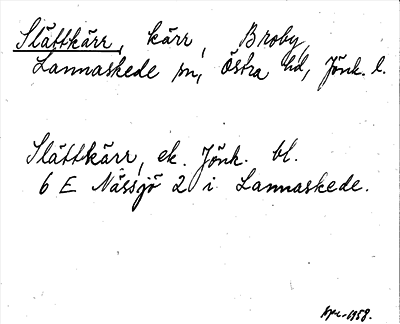 Slättkärr, kärr, Broby,
Lannaskede sn, Östra hd, Jönk. l.
Slättkärr, ek. Jönk. bl.
6 E Nässjö 2 i Lannaskede.
1958.